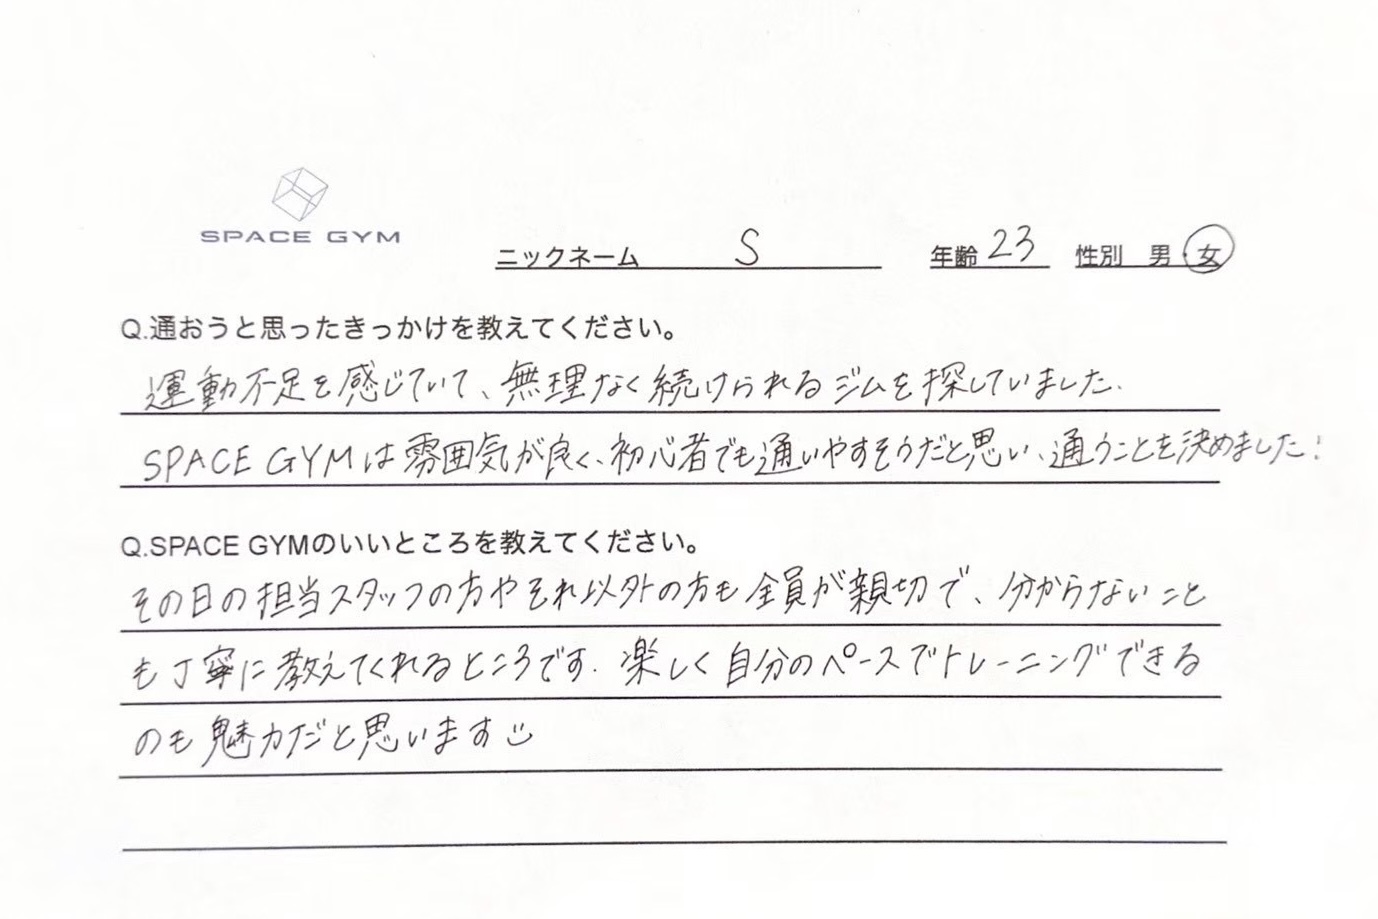 SPACE GYM
ニックネーム S 年齢 23 性別 男・女
Q.通おうと思ったきっかけを教えてください。
運動不足を感じていて、無理なく続けられるジムを探していました.
SPACE GYMは雰囲気が良く、初心者でも通いやすそうだと思い、通うことを決めました!
Q.SPACE GYMのいいところを教えてください。
その日の担当スタッフの方やそれ以外の方も全員が親切で、分からないこと
も丁寧に教えてくれるところです. 楽しく自分のペースでトレーニングできる
のも魅力だと思います